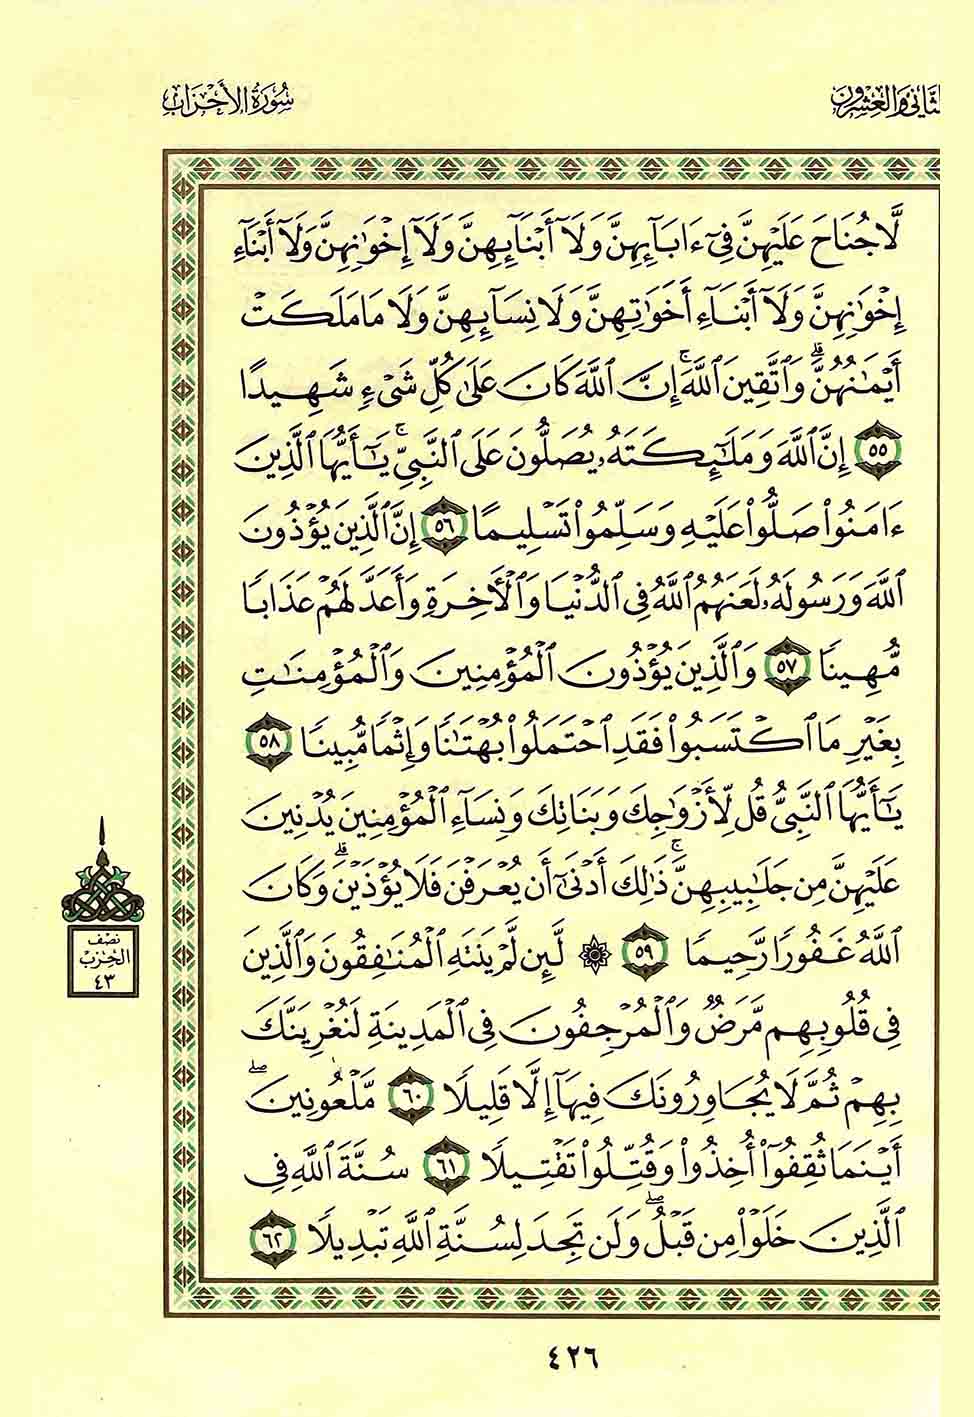 سُورَةُ الأَحْزَابِ
الثَّانِي وَالعِشْرُونَ
لَّا جُنَاحَ عَلَيْهِنَّ فِىٓ ءَابَآئِهِنَّ وَلَآ أَبْنَآئِهِنَّ وَلَآ إِخْوَٰنِهِنَّ وَلَآ أَبْنَآءِ
إِخْوَٰنِهِنَّ وَلَآ أَبْنَآءِ أَخَوَٰتِهِنَّ وَلَا نِسَآئِهِنَّ وَلَا مَا مَلَكَتْ
أَيْمَٰنُهُنَّۗ وَٱتَّقِينَ ٱللَّهَۚ إِنَّ ٱللَّهَ كَانَ عَلَىٰ كُلِّ شَىْءٍ شَهِيدًا
٥٥ إِنَّ ٱللَّهَ وَمَلَٰٓئِكَتَهُۥ يُصَلُّونَ عَلَى ٱلنَّبِىِّۚ يَٰٓأَيُّهَا ٱلَّذِينَ
ءَامَنُوا۟ صَلُّوا۟ عَلَيْهِ وَسَلِّمُوا۟ تَسْلِيمًا ٥٦ إِنَّ ٱلَّذِينَ يُؤْذُونَ
ٱللَّهَ وَرَسُولَهُۥ لَعَنَهُمُ ٱللَّهُ فِى ٱلدُّنْيَا وَٱلْءَاخِرَةِ وَأَعَدَّ لَهُمْ عَذَابًا
مُّهِينًا ٥٧ وَٱلَّذِينَ يُؤْذُونَ ٱلْمُؤْمِنِينَ وَٱلْمُؤْمِنَٰتِ
بِغَيْرِ مَا ٱكْتَسَبُوا۟ فَقَدِ ٱحْتَمَلُوا۟ بُهْتَٰنًا وَإِثْمًا مُّبِينًا ٥٨
يَٰٓأَيُّهَا ٱلنَّبِىُّ قُل لِّأَزْوَٰجِكَ وَبَنَاتِكَ وَنِسَآءِ ٱلْمُؤْمِنِينَ يُدْنِينَ
عَلَيْهِنَّ مِن جَلَٰبِيبِهِنَّۚ ذَٰلِكَ أَدْنَىٰٓ أَن يُعْرَفْنَ فَلَا يُؤْذَيْنَۗ وَكَانَ
ٱللَّهُ غَفُورًا رَّحِيمًا ٥٩ ۞ لَّئِن لَّمْ يَنتَهِ ٱلْمُنَٰفِقُونَ وَٱلَّذِينَ
فِى قُلُوبِهِم مَّرَضٌ وَٱلْمُرْجِفُونَ فِى ٱلْمَدِينَةِ لَنُغْرِيَنَّكَ
بِهِمْ ثُمَّ لَا يُجَاوِرُونَكَ فِيهَآ إِلَّا قَلِيلًا ٦٠ مَّلْعُونِينَۖ
أَيْنَمَا ثُقِفُوٓا۟ أُخِذُوا۟ وَقُتِّلُوا۟ تَقْتِيلًا ٦١ سُنَّةَ ٱللَّهِ فِى
ٱلَّذِينَ خَلَوْا۟ مِن قَبْلُۖ وَلَن تَجِدَ لِسُنَّةِ ٱللَّهِ تَبْدِيلًا ٦٢
نِصْف
الحِزْب
٤٣
٤٢٦